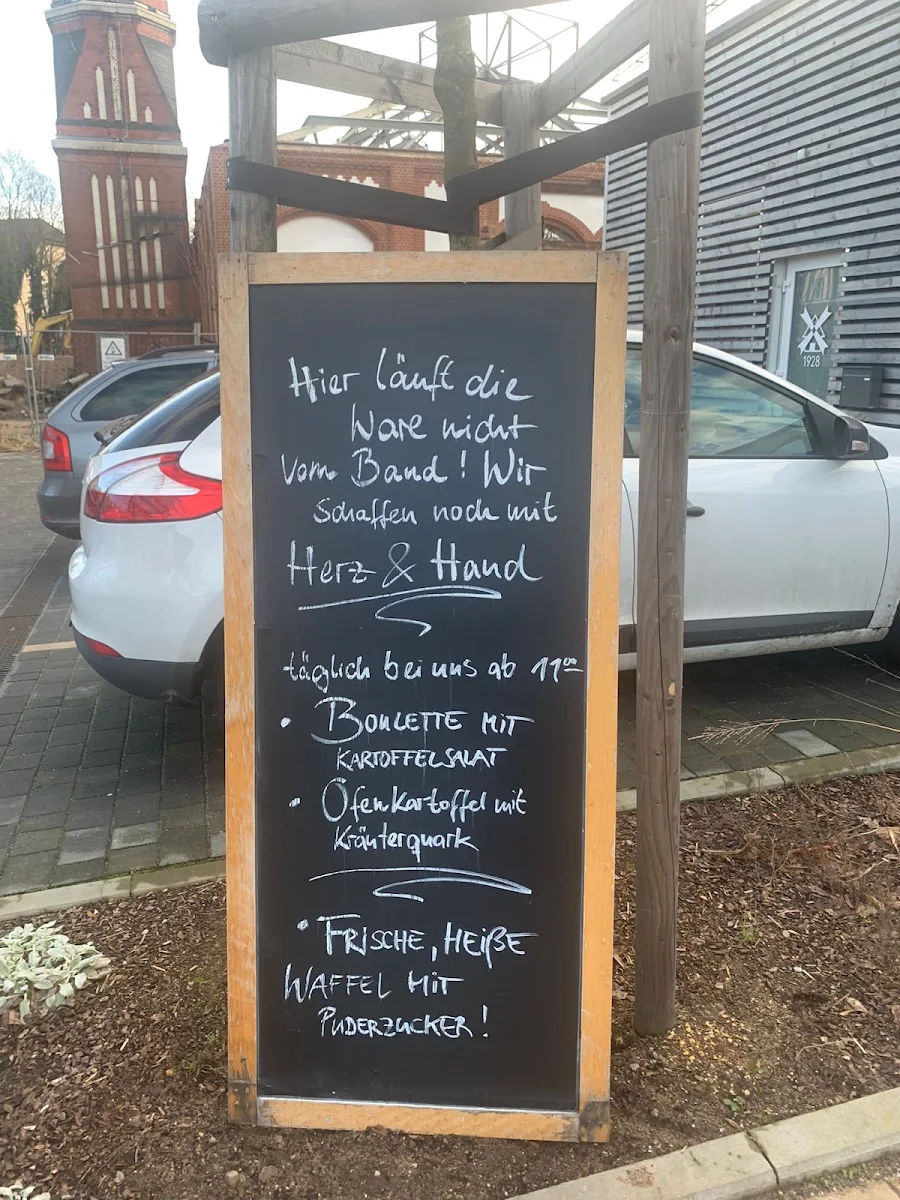 1928
Hier läuft die
Ware nicht
vom Band! Wir
schaffen noch mit
Herz & Hand
täglich bei uns ab 11⁰⁰
• BOULETTE MIT
KARTOFFELSALAT
• Ofenkartoffel mit
Kräuterquark
• FRISCHE, HEIßE
WAFFEL MIT
PUDERZUCKER!